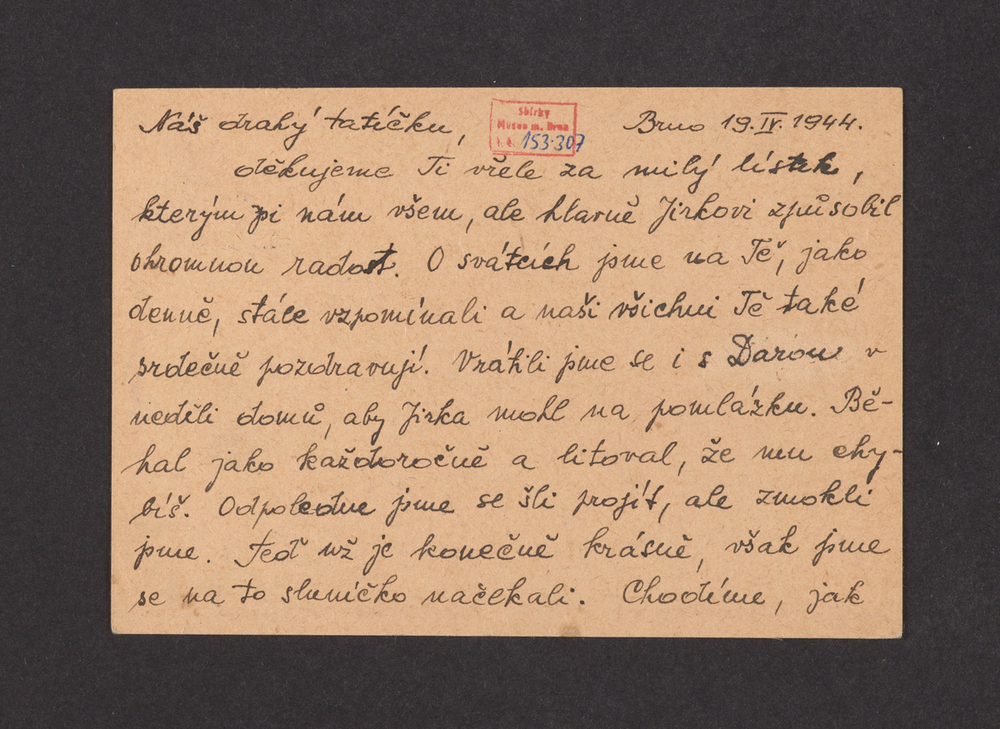 Náš drahý tatíčku,
Sbírky
Musea m. Brna
i. č. 153.307
Brno 19.IV.1944.
děkujeme Ti vřele za milý lístek,
kterým jsi nám všem, ale hlavně Jirkovi způsobil
ohromnou radost. O svátcích jsme na Tě, jako
denně, stále vzpomínali a naši všichni Tě také
srdečně pozdravují. Vrátili jsme se i s Darou v
neděli domů, aby Jirka mohl na pomlázku. Bě-
hal jako každoročně a litoval, že mu chy-
bíš. Odpoledne jsme se šli projít, ale zmokli
jsme. Teď už je konečně krásně, však jsme
se na to sluníčko načekali. Chodíme, jak